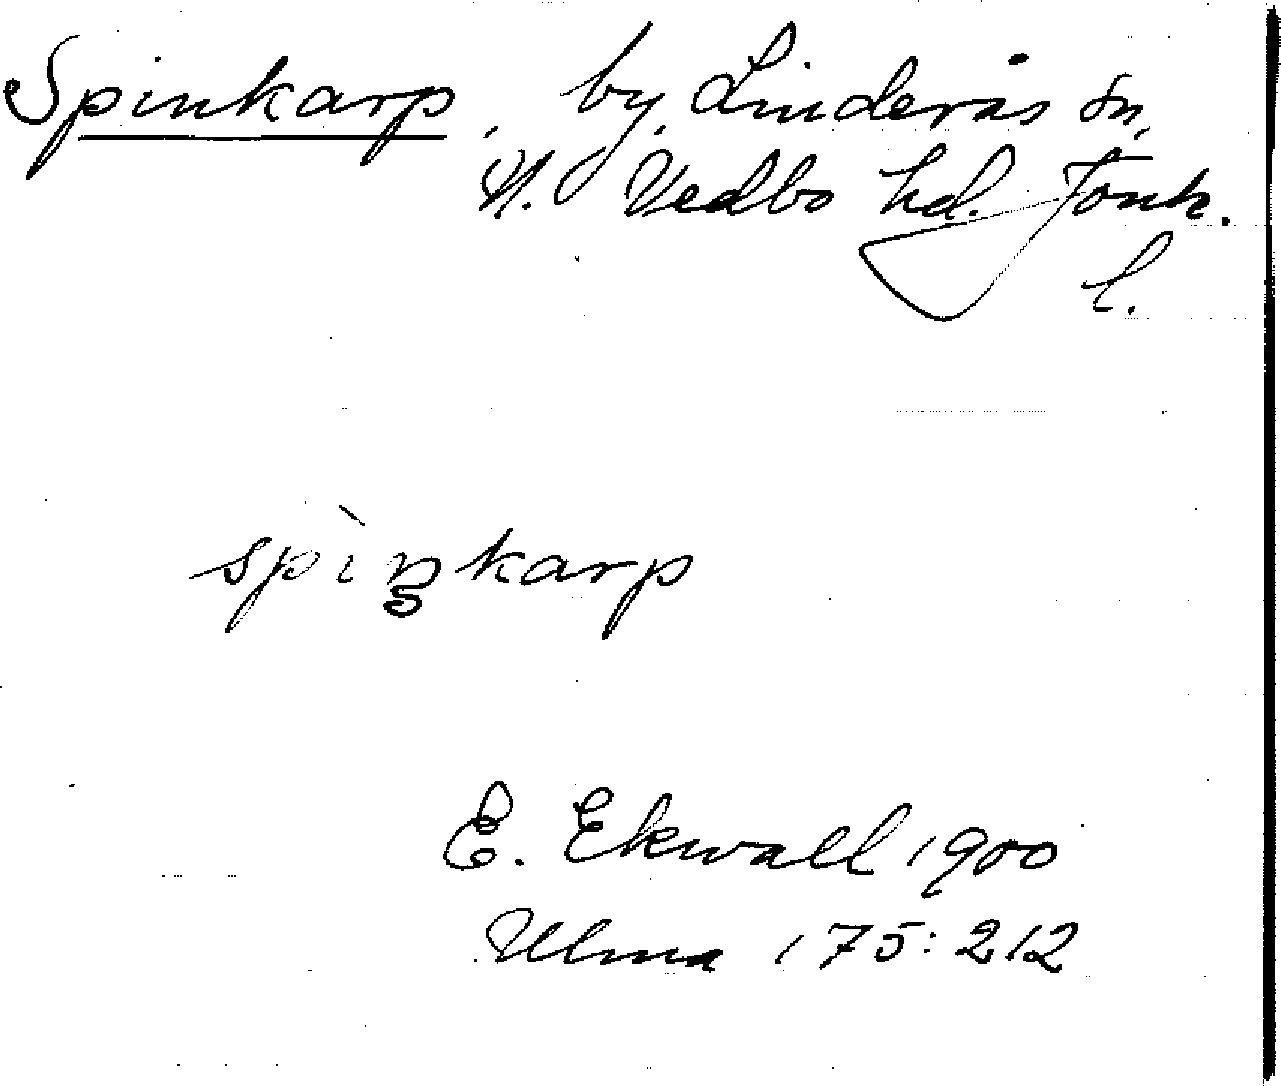 Spinkarp, by, Linderås sn,
N. Vedbo hd. Jönk.
l.
spìn̥karp
E. Ekwall 1900
Ulma 175:212